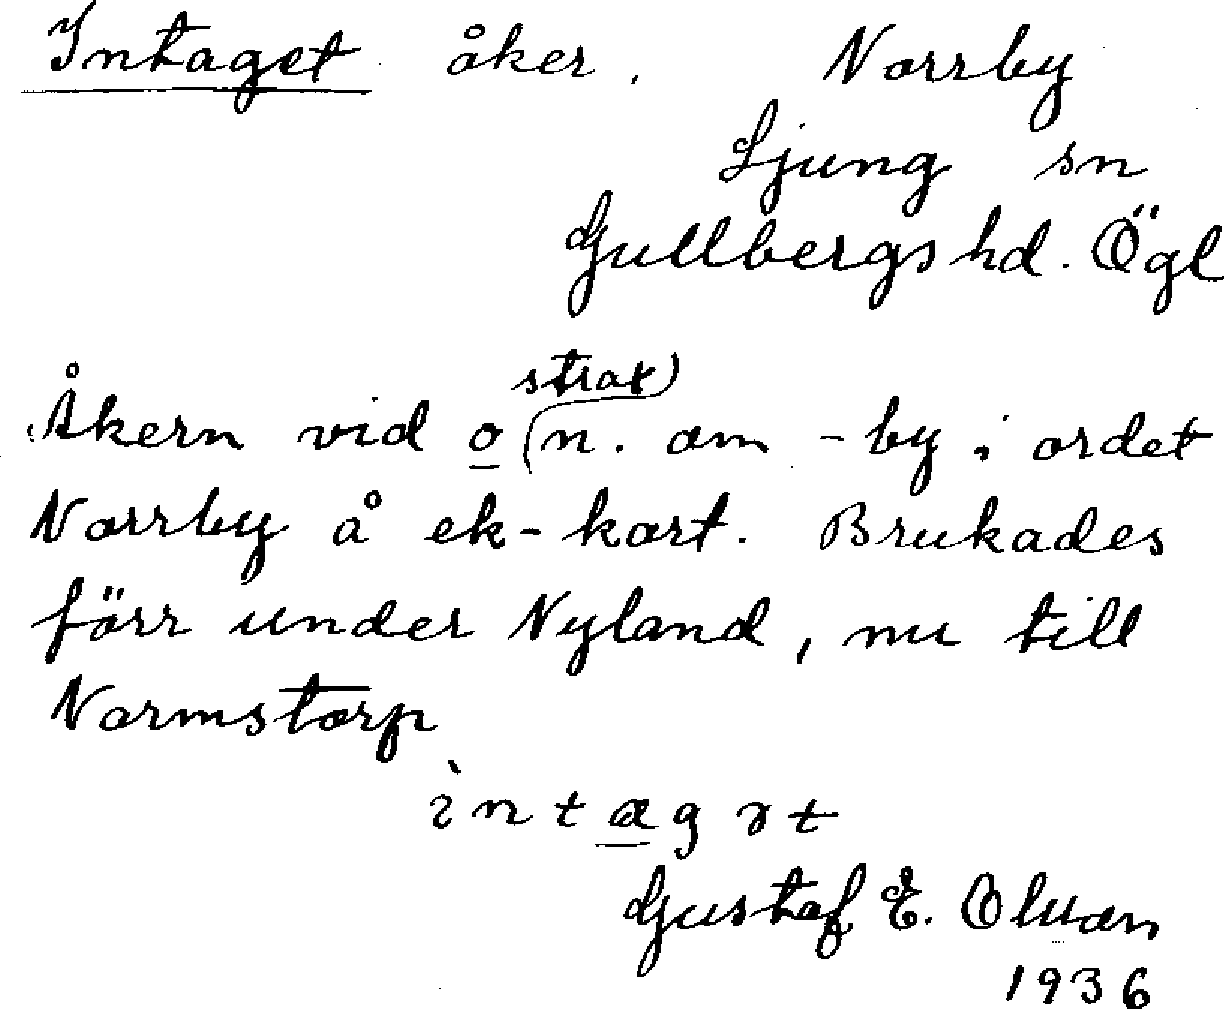 Intaget åker. Norrby
Ljung sn
Gullbergs hd. Ögl
strax)
Åkern vid o (n. om -by i ordet
Norrby å ek-kart. Brukades
förr under Nyland, nu till
Normstorp
Gustaf E. Olson
1936